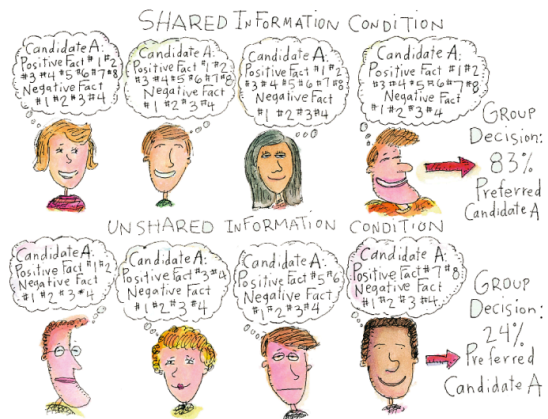 SHARED INFORMATION CONDITION
Candidate A:
Positive Fact #1#2
#3#4#5#6#7#8
Negative Fact
#1#2#3#4
Candidate A:
Positive Fact #1#2
#3#4#5#6#7#8
Negative Fact
#1#2#3#4
Candidate A:
Positive Fact #1#2
#3#4#5#6#7#8
Negative Fact
#1#2#3#4
Candidate A:
Positive Fact #1#2
#3#4#5#6#7#8
Negative Fact
#1#2#3#4
GROUP
Decision:
83%
Preferred
Candidate A
UNSHARED INFORMATION CONDITION
Candidate A:
Positive Fact #1#2
Negative Fact
#1#2#3#4
Candidate A:
Positive Fact #3#4
Negative Fact
#1#2#3#4
Candidate A:
Positive Fact #5#6
Negative Fact
#1#2#3#4
Candidate A:
Positive Fact #7#8
Negative Fact
#1#2#3#4
GROUP
Decision:
24%
Preferred
Candidate A